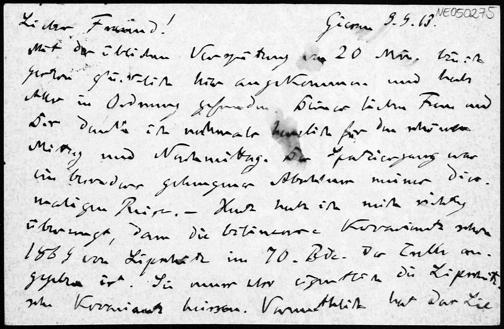 NE050275
Lieber Freund! Giessen 9.9.18.
Mit der üblichen Verspätung von 20 Min. bin ich
gestern glücklich hier angekommen und habe
Alles in Ordnung gefunden. Deiner lieben Frau und
Dir danke ich nochmals herzlich für den schönen
Mittag und Nachmittag. Der Spaziergang war
ein besonders gelungener Abschluss meiner dies-
maligen Reise. — Heute habe ich mich richtig
überzeugt, dass die bilineare Kovariante schon
1869 von Lipschitz im 70. Bde. des Crelle an-
gegeben ist. Sie muss also eigentlich die Lipschitz-
sche Kovariante heissen. Vermuthlich hat das Lie